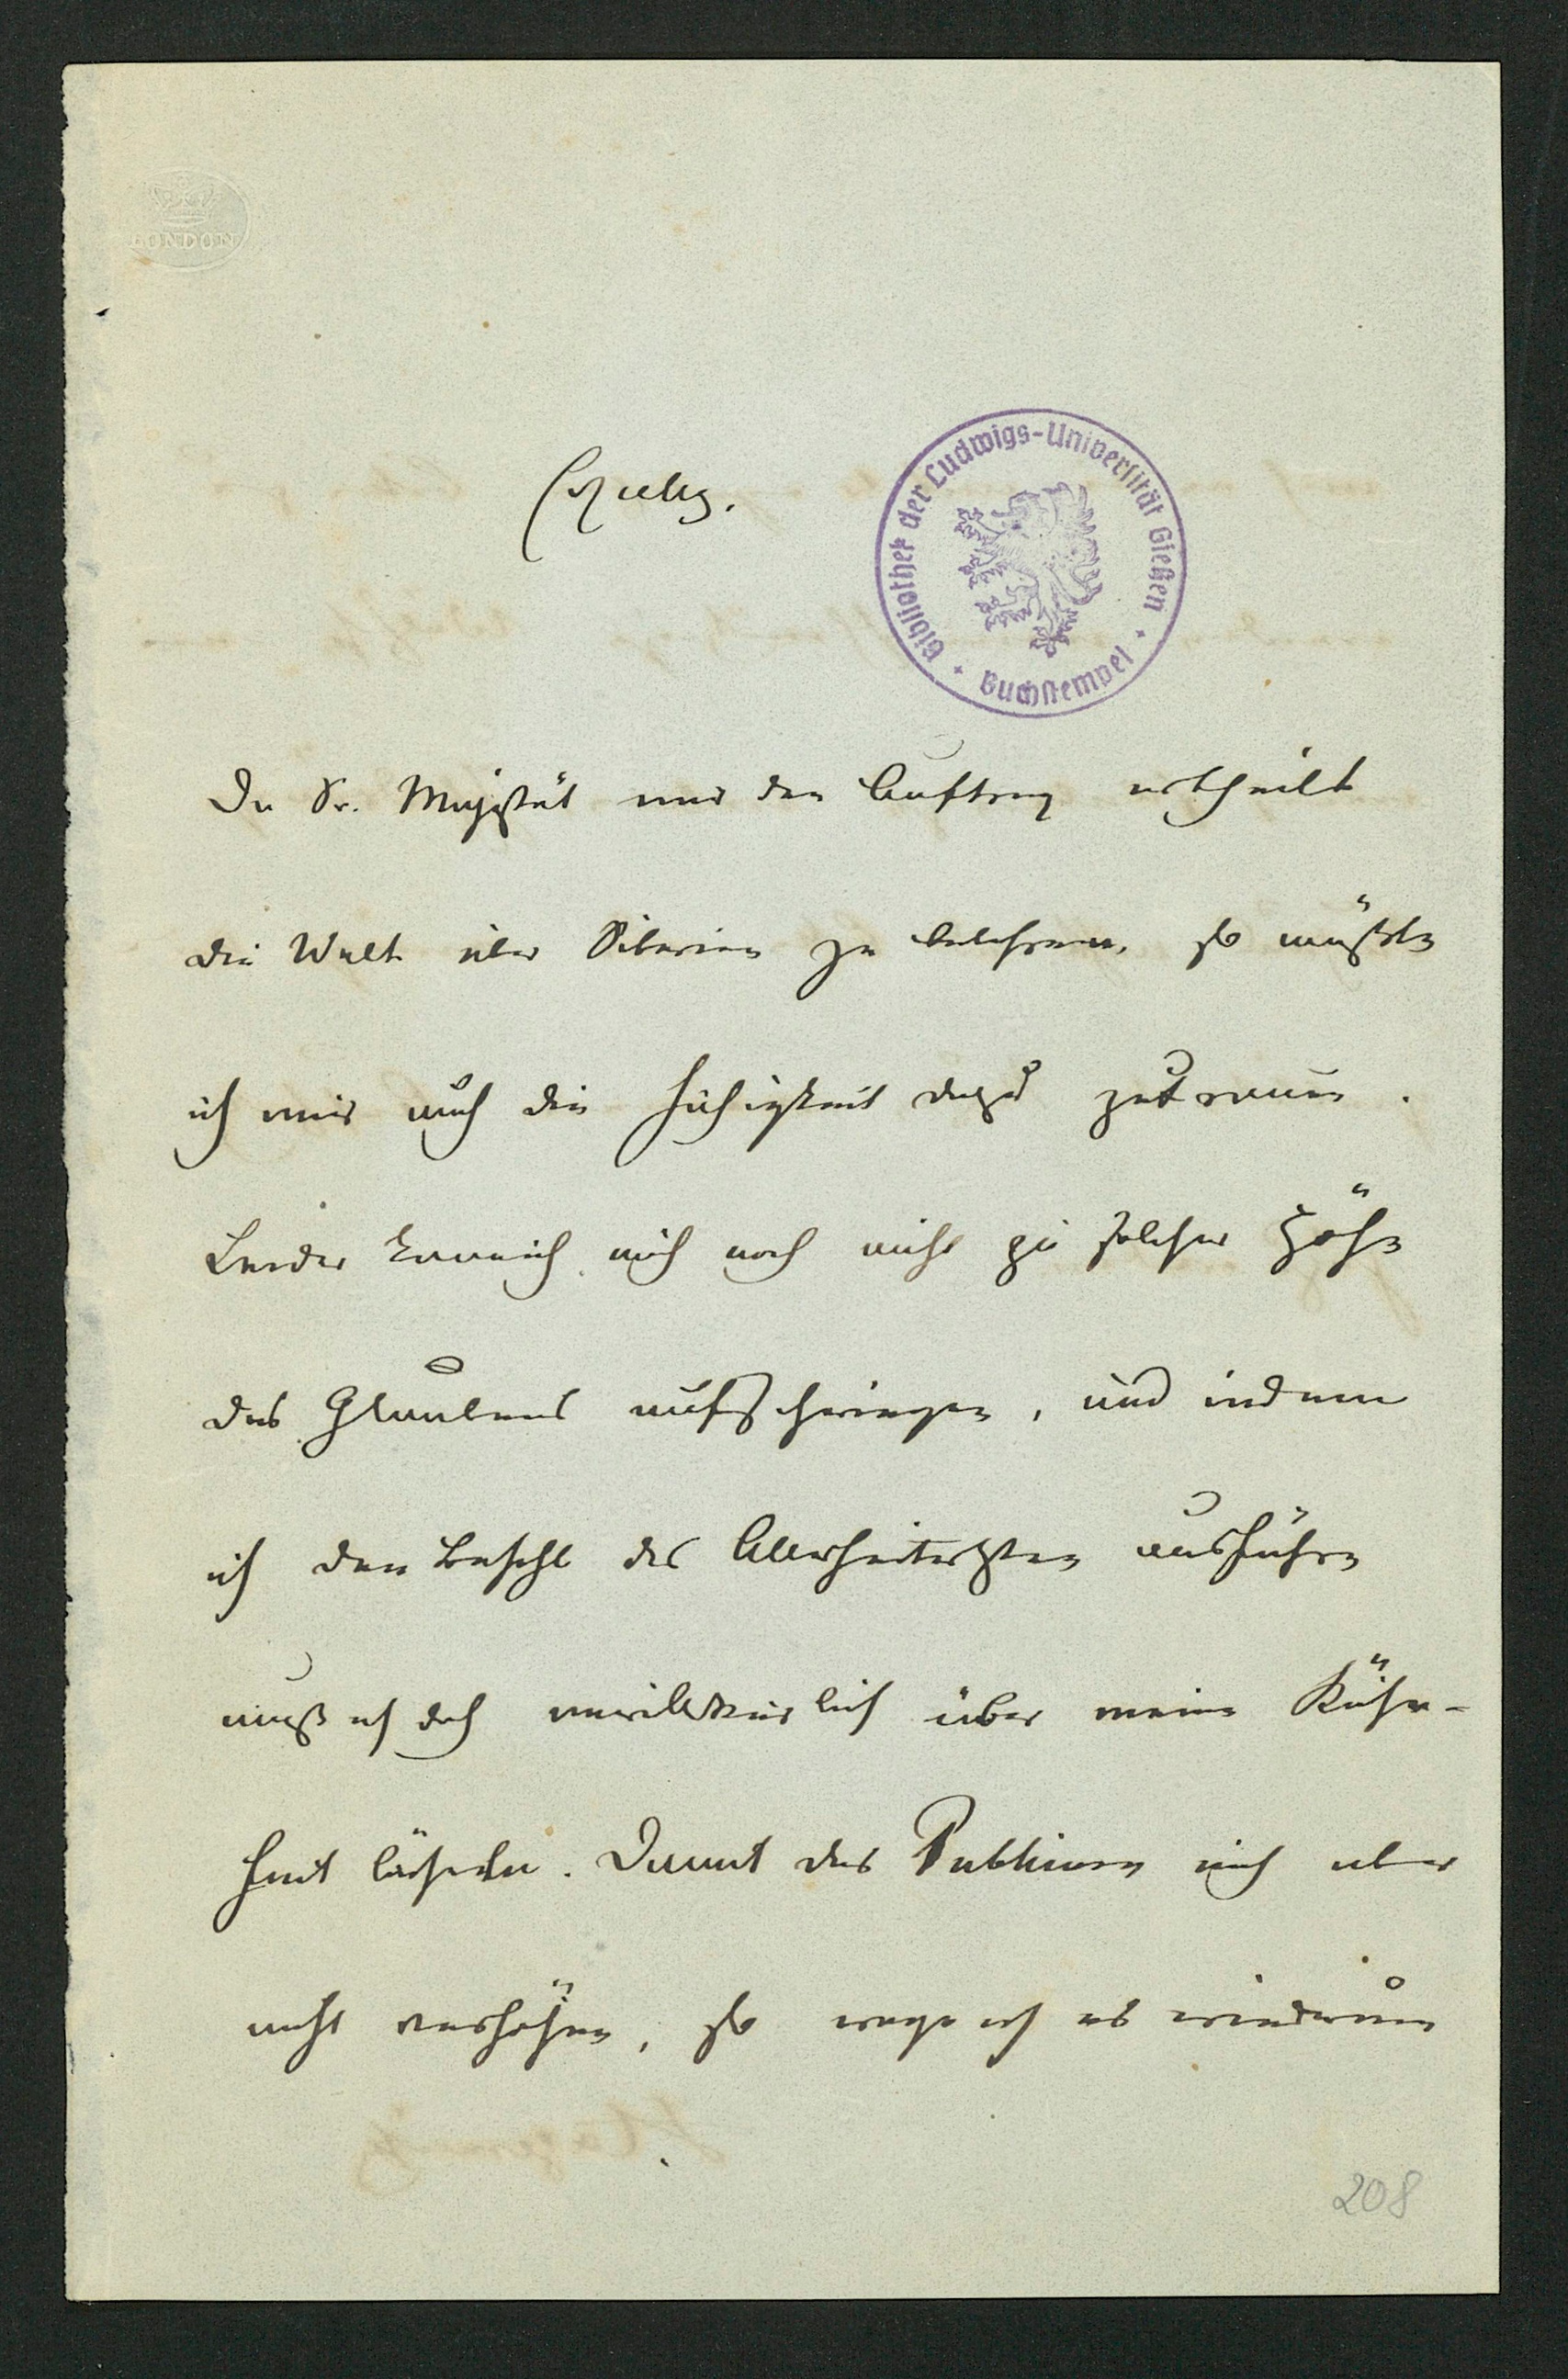 LONDON
Bibliothek der Ludwigs-Universität Gießen
Buchstempel
Da Sr. Majestät mir den Auftrag ertheilt
die Welt über Siberien zu belehren, so müßte
ich mir auch die Fähigkeit dazu zutrauen.
Leider kann ich mich noch nicht zu solcher Höhe
des Glaubens aufschwingen, und indem
ich den Befehl des Allerheitersten ausführe
muß ich doch unwillkürlich über meine Kühn-
heit lächeln. Damit das Publicum mich aber
nicht verhöhne, so wage ich es wiederum
208